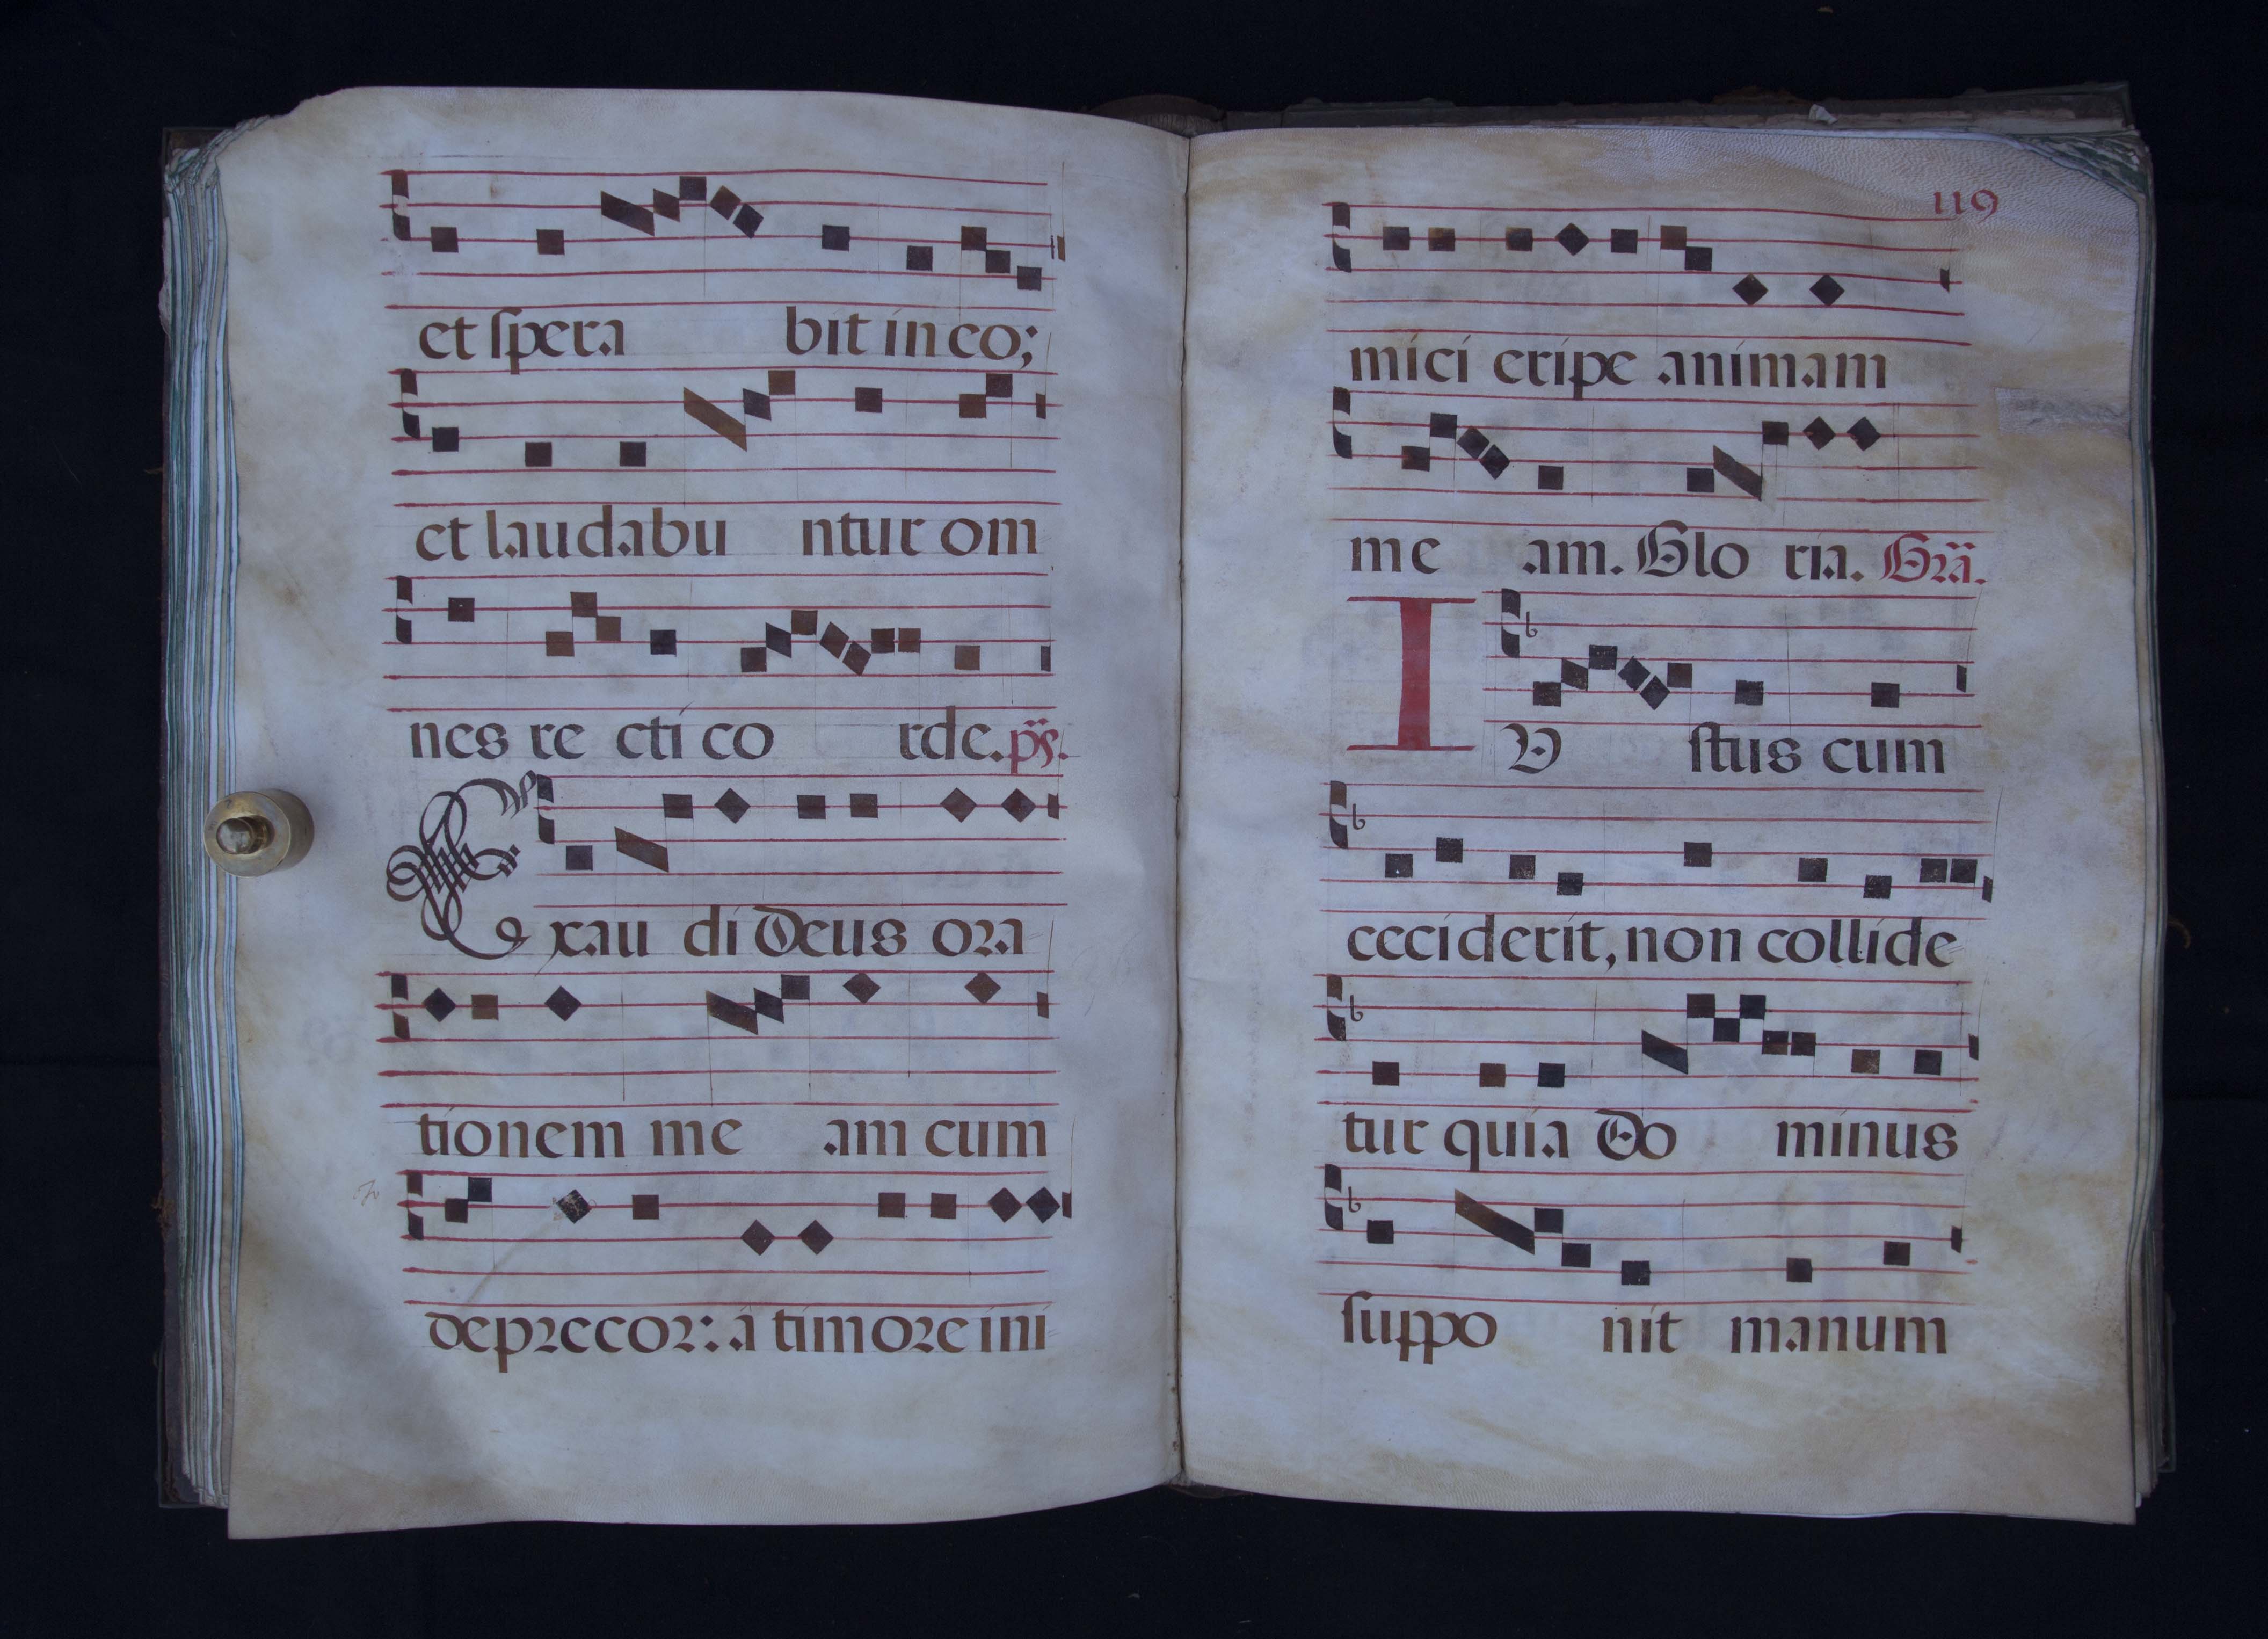 et ſpera bit in eo;
et laudabu ntur om
nes re cti co rde. ps.
E xau di Deus ora
tionem me am cum
deprecor: á timore ini
119
mici eripe animam
me am. Glo ria. Grã.
I V ſtus cum
ceciderit, non collide
tur quia Do minus
ſuppo nit manum